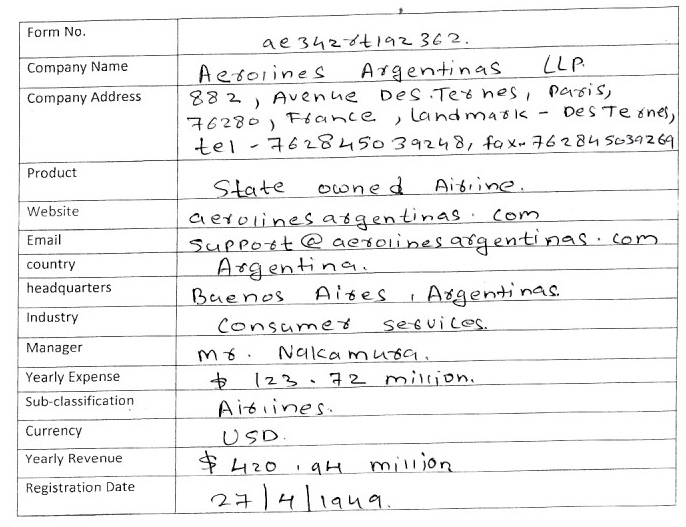 Form No. ae342rt192362.
Company Name Aerolines Argentinas LLP.
Company Address 882, Avenue Des.Ternes, Paris,
76280, France, landmark - Des Ternes,
tel - 762845039248, fax- 762845039269
Product State owned Airline.
Website aerolinesargentinas.com
Email support@aerolinesargentinas.com
country Argentina.
headquarters Buenos Aires, Argentinas.
Industry Consumer services.
Manager Mr. Nakamura.
Yearly Expense $ 123.72 million.
Sub-classification Airlines.
Currency USD.
Yearly Revenue $ 420.94 million
Registration Date 27/4/1949.